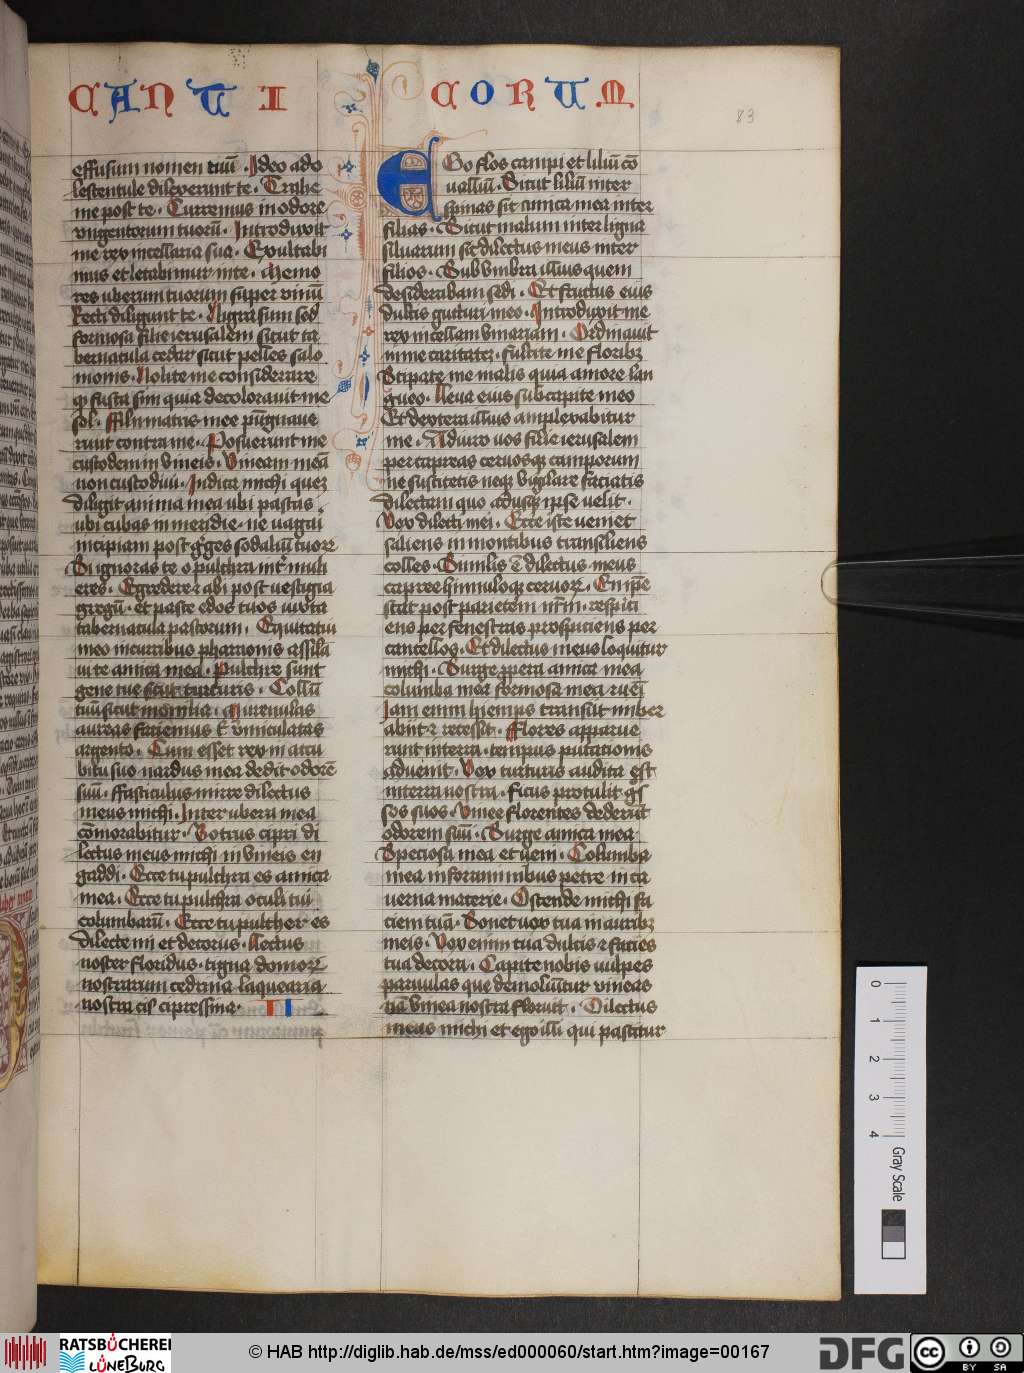 CANTI CORUM
83
effusum nomen tuū · Ideo ado
lescentule dilexerunt te · Trahe
me post te · Curremus in odore
vngentorum tuorū · Introduxit
me rex in cellaria sua · Exultabi
mus et letabimur in te · Memo
res uberum tuorum super vinū
Recti diligunt te · Nigra sum sed
formosa filie ierusalem sicut ta
bernacula cedar sicut pelles salo
monis · Nolite me considerare
qp fusca sim quia decolorauit me
sol · Filij matris mee pugnaue
runt contra me · Posuerunt me
custodem in vineis · Vineam meā
non custodiui · Indica michi quez
diligit anima mea ubi pascas
ubi cubas in meridie · ne uagari
incipiam post gͦges sodaliū tuorꝝ
Si ignoras te o pulchra int muli
eres · Egredere ⁊ abi post uestigia
gregū · et pasce edos tuos iuxta
tabernacula pastorum · Equitatui
meo in curribus pharaonis assila
ui te amica mea · Pulchre sunt
gene tue sicut turturis · Collū
tuū sicut monilia · Murenulas
aureas faciemus t vmiculatas
argento · Cum esset rex in accu
bitu suo nardus mea dedit odorē
suū · Fasciculus mirre dilectus
meus michi · Inter ubera mea
cōmorabitur · Botrus cipri di
lectus meus michi in vineis en
gaddi · Ecce tu pulchra es amica
mea · Ecce tu pulchra oculi tui
columbarū · Ecce tu pulcher es
dilecte mi et decorus · Lectus
noster floridus · tigna domorꝝ
nostrarum cedrina laquearia
nostra cipressina · II
EGo flos campi et liliū cō
ualliū · Sicut liliū inter
spinas sic amica mea inter
filias · Sicut malum inter ligna
siluarum sic dilectus meus inter
filios · Sub vmbra illius quem
desiderabam sedi · Et fructus eius
dulcis gutturi meo · Introduxit me
rex in cellam vinariam · Ordinauit
in me caritatez · fulcite me floribz
Stipate me malis quia amore lan
gueo · Leua eius sub capite meo
Et dextera illius amplexabitur
me · Adiuro uos filie ierusalem
per capreas ceruosqz camporum
ne suscitetis neqz vigilare faciatis
dilectam quo adusqz ipse velit ·
Vox dilecti mei · Ecce iste uenit
saliens in montibus transiliens
colles · Similis ē dilectus meus
capree hinnuloqz ceruorꝝ · En ipē
stat post parietem nrm̄ · respici
ens per fenestras prospiciens per
cancellos · Et dilectus meus loquitur
michi · Surge propera amica mea
columba mea formosa mea ⁊ uēi
Iam enim hiemps transiit imber
abiit ⁊ recessit · Flores apparue
runt in terra · tempus putationis
aduenit · Vox turturis audita est
in terra nostra · ficus protulit gͦs
sos suos · Vinee florentes dederūt
odorem suū · Surge amica mea
Speciosa mea et ueni · Columba
mea in foraminibus petre in ca
uerna macerie · Ostende michi fa
ciem tuā · Sonet vox tua in auribz
meis · Vox enim tua dulcis ⁊ facies
tua decora · Capite nobis vulpes
paruulas que demoliūtur vineas
nā vinea nostra floruit · Dilectus
meus michi et ego illi qui pascitur
0
1
2
3
4
Gray Scale
RATSBÜCHEREI
LÜNEBURG
© HAB http://diglib.hab.de/mss/ed000060/start.htm?image=00167
DFG
cc
BY SA